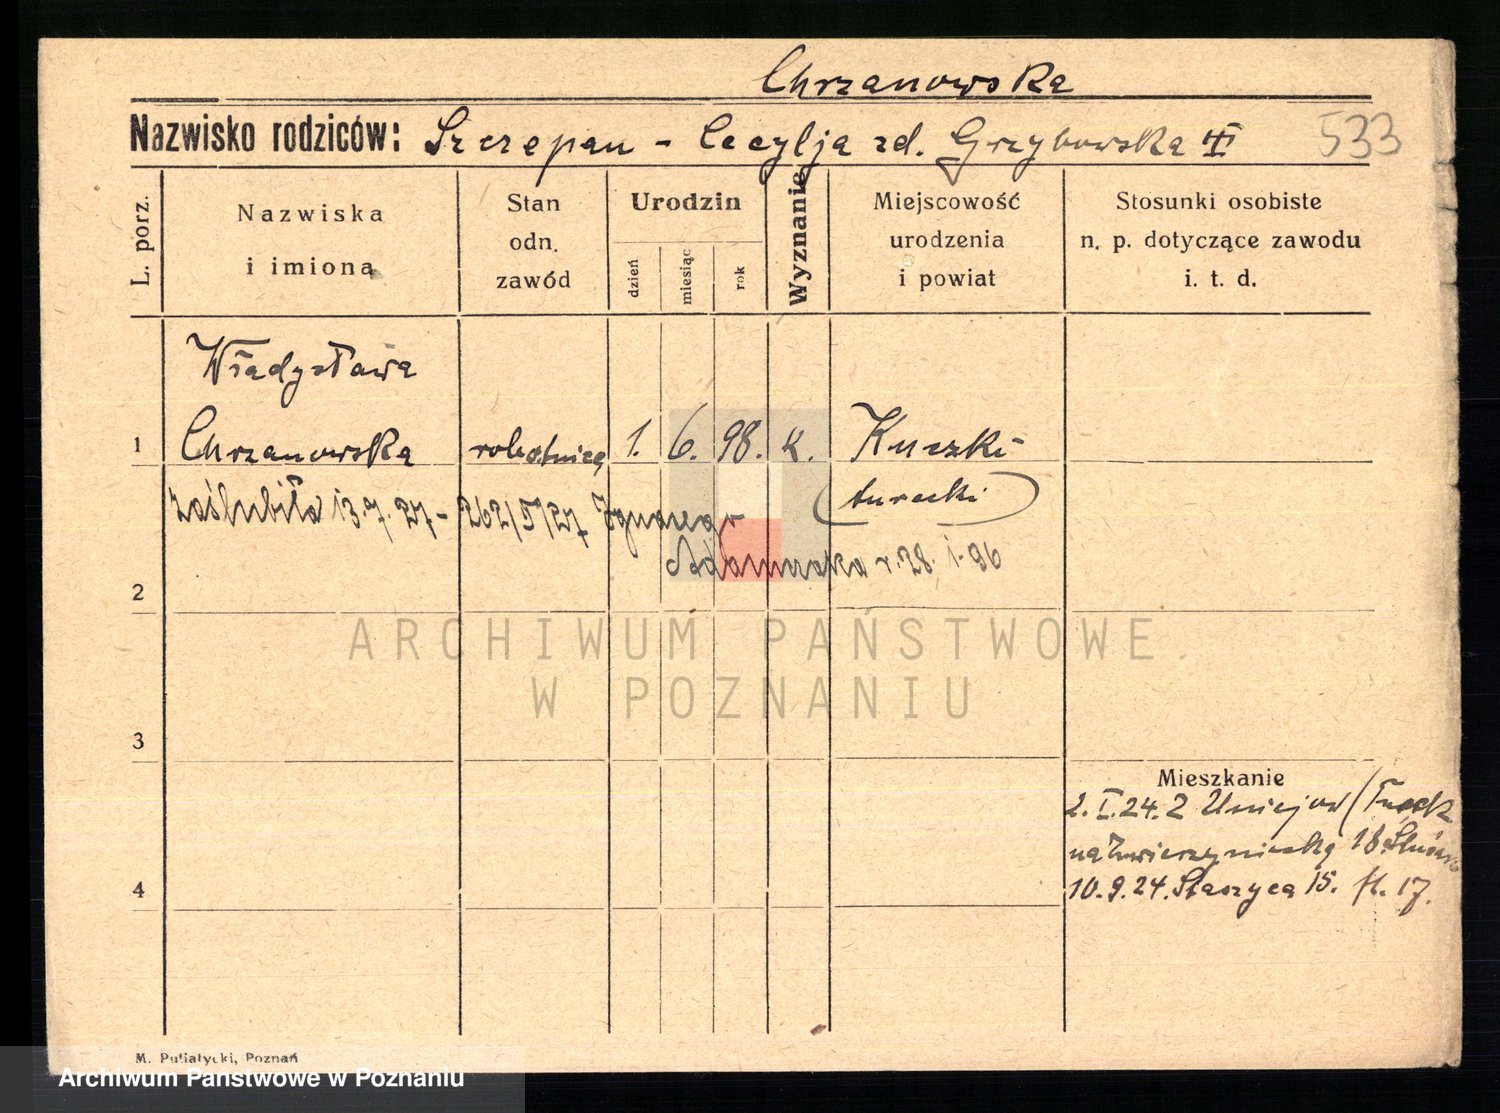 Chrzanowska
Nazwisko rodziców: Szczepan - Cecylja zd. Grzybowska 533
L. porz.
Nazwiska
i imioną
Stan
odn.
zawód
Urodzin
dzień
miesiąc
rok
Wyznanie
Miejscowość
urodzenia
i powiat
Stosunki osobiste
n. p. dotyczące zawodu
i. t. d.
Władysława
1 Chrzanowska robotnica 1. 6. 98. k. Kuczki
(turecki)
zaślubiła 13.7.27 - 262/ /27 Ignacego
Adamiaka r. 28.1.96
2
ARCHIWUM PAŃSTWOWE
W POZNANIU
3
Mieszkanie
2.I.24. z Uniejow (Tureck
na Zwierzyniecką 18
4
10.9.24. Staszyca 15. 17.
M. Putiatycki, Poznań
Archiwum Państwowe w Poznaniu